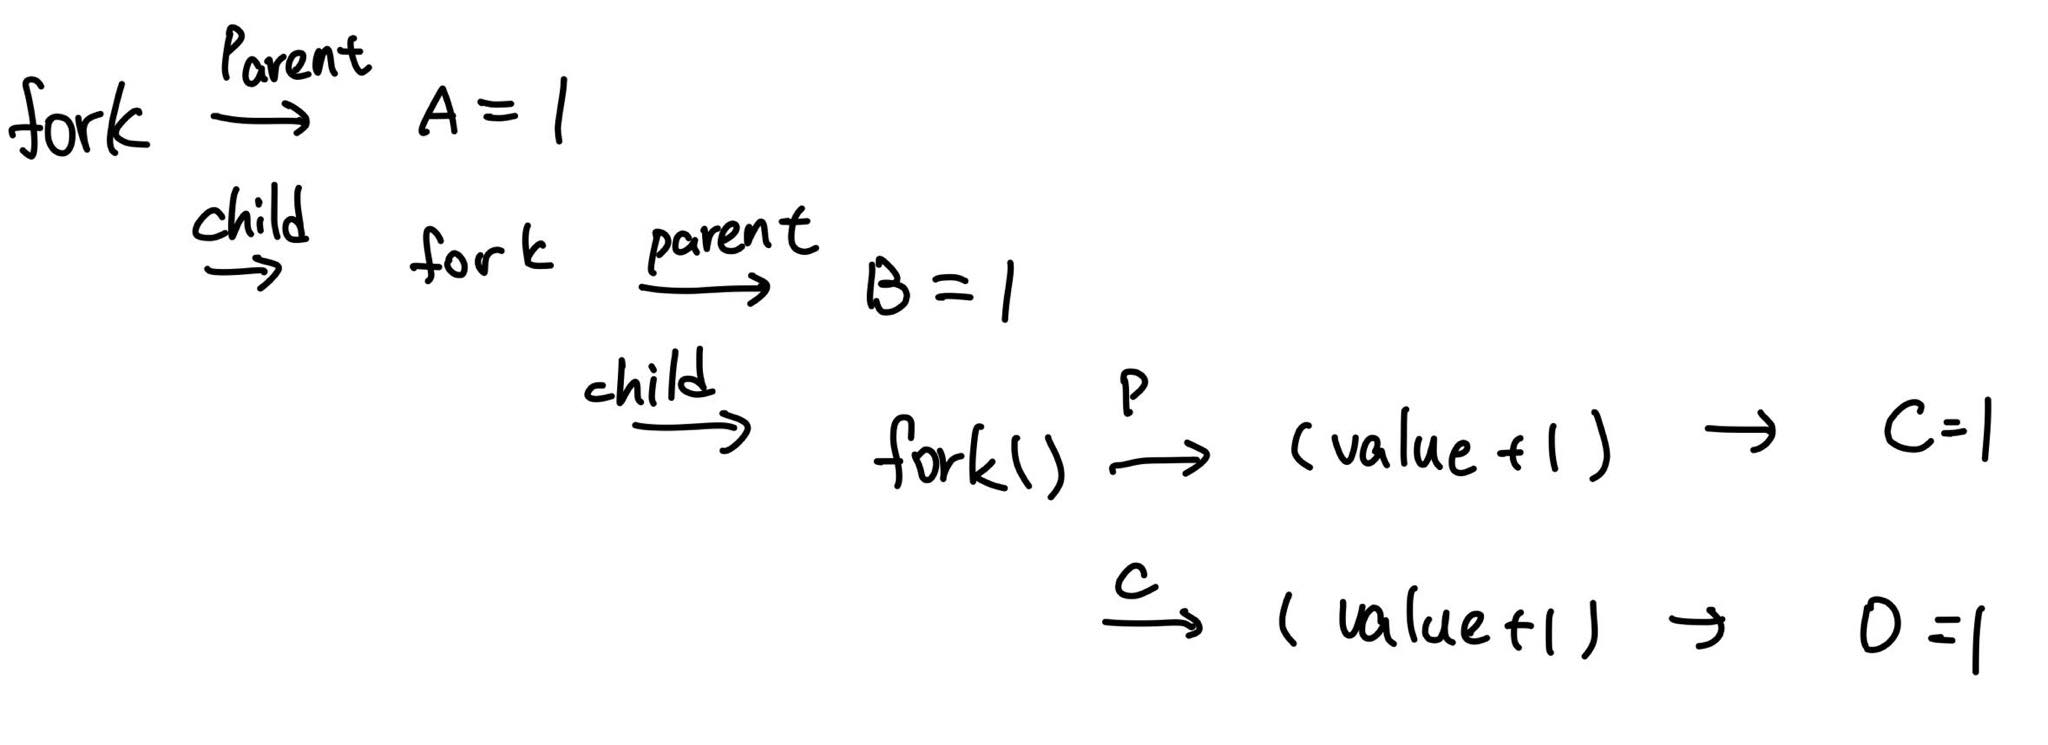 Parent
fork → A = 1
child
→ fork parent → B = 1
child
→ fork() P → (value + 1) → C=1
C → (value+1) → D =1